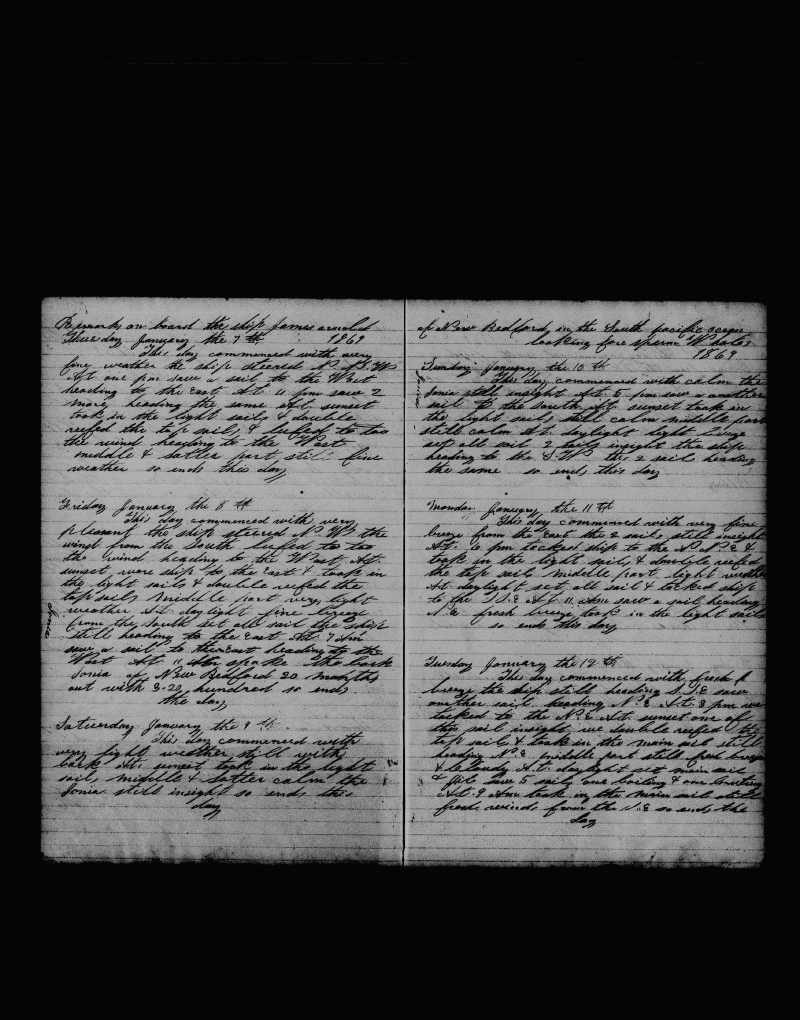 Remarks on board the ship James arnold
Thursday January the 7 th 1869
This day commenced with very
fine weather the ship steered N.
At one pm saw a sail to the West
heading to the East At 11 pm saw 2
more heading the same At sunset
took in the light sails & double
reefed the top sails & lufed to too
the wind heading to the West
middle & latter part still fine
weather so ends this day
Friday January the 8 th
This day commenced with very
pleasant the ship steered N. W. the
wind from the South lufed to too
the wind heading to the West At
sunset wore ship to the East & took in
the light sails & double reefed the
top sails middle part very light
weather At daylight fine breeze
from the South set all sail the ship
still heading to the East At 7 Am
saw a sail to the East heading to the
West At 11 Am spoke the bark
Sonia of New Bedford 20 months
out with 3.20 hundred so ends
the day
Saturday January the 9 th
This day commenced with
very light weather still with
bark At sunset took in the light
sail middle & latter calm the
Sonia still insight so ends this
day
of New Bedford in the South pacific ocean
looking fore sperm Whales
1869
Sunday January the 10 th
This day commenced with calm the
Sonia still insight At 5 pm saw a another
sail to the South At sunset took in
the light sails still calm middle part
still calm At daylight light breeze
set all sail 2 sails insight the ship
heading to the S.W. the 2 sail heading
the same so ends this day
Monday January the 11 th
This day commenced with very fine
breeze from the East the 2 sails still insight
At 6 pm tacked ship to the N.N.E &
took in the light sails & double reefed
the top sails middle part light weather
At daylight set all sail & tacked ship
to the S.E At 11 Am saw a sail heading
N.E. fresh breeze took in the light sails
so ends this day
Tuesday January the 12 th
This day commenced with fresh
breeze the ship still heading S.E saw
another sail heading N.E At 3 pm we
tacked to the N.E At sunset one of
the sail insight we double reefed the
top sails & took in the main sail still
heading N.E. middle part still fresh breeze
& cloudy At daylight set main sail
& saw 5 sails one boiling & one
At 9 Am took in the main sail still
fresh winds from the S.E so ends the
day